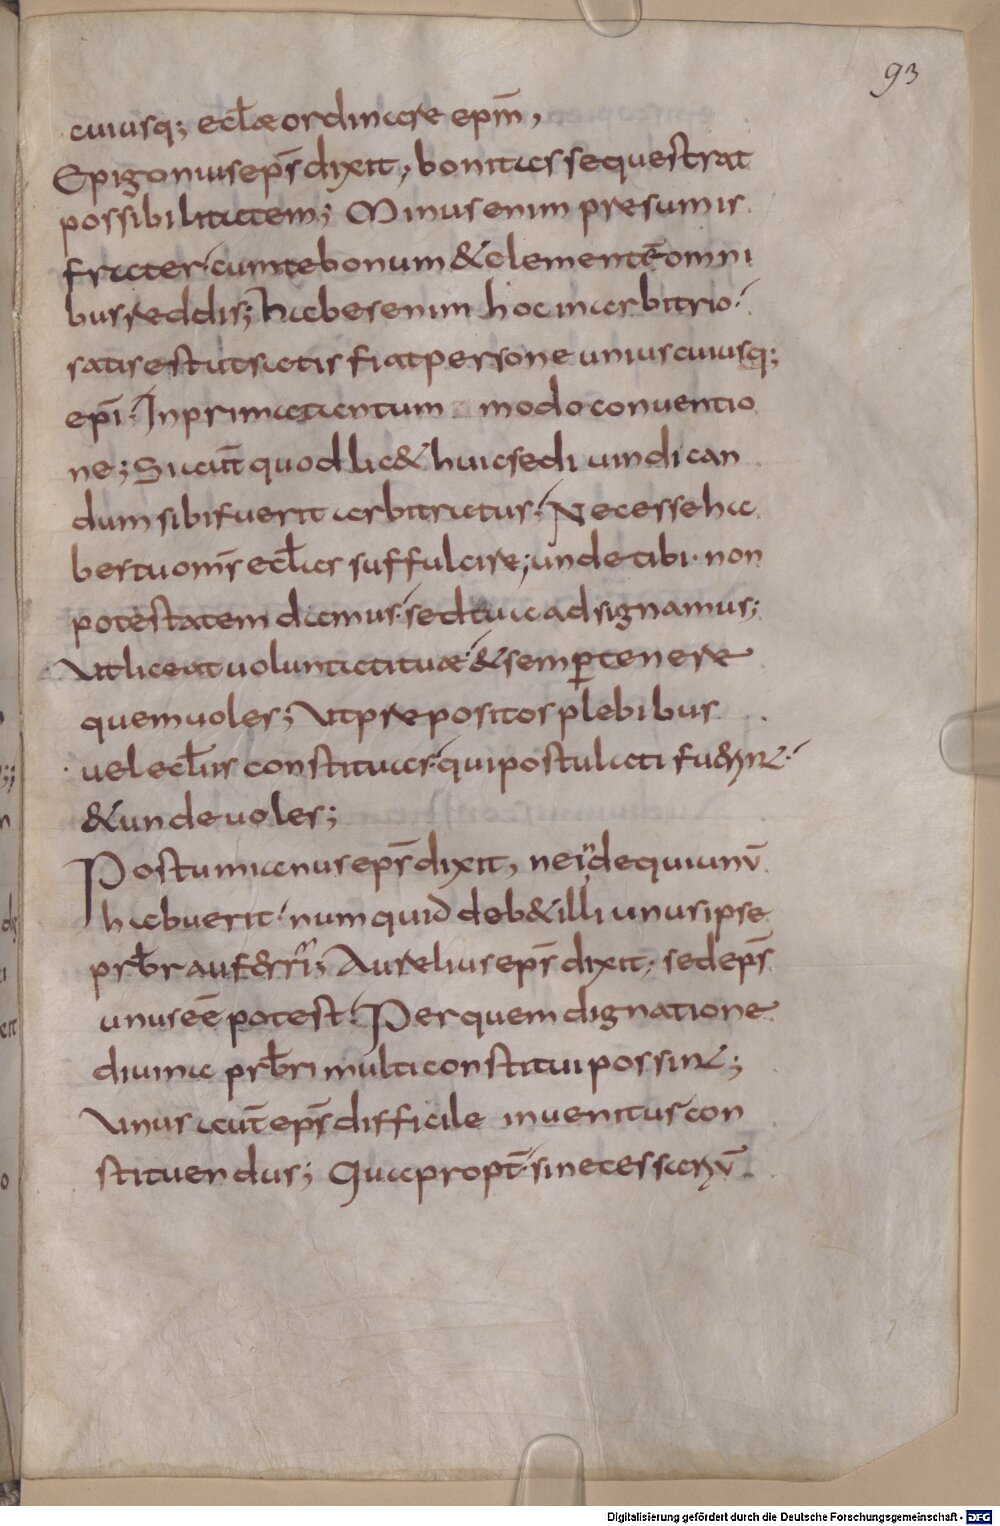 93
cuiusq; eclae ordinare epm̄,
Epigonius eps̄ dixit, bonitas sequestrat
possibilitatem; Minus enim presumis
frater· cum te bonum & clementē omni
bus reddis; habes enim hoc in arbitrio·
satis est ut satis fiat persone unius cuiusq;
epī· In prima tantum modo conuentio
ne; Si aut̄ quod lic& huic sedi uindican
dum sibi fuerit arbitratus· Necesse ha
bes tu om̄s ecl̄as suffulcire; unde tibi· non
potestatem damus· sed tua adsignamus;
Ut liceat uoluntati tuae· & semꝑ tenere
quem uoles; Ut prepositos plebibus
uel ecl̄iis constituas· qui postulati fuer̄·
& unde uoles;
Postumianus eps̄ dixit, nein̄de qui unū
habuerit· numquid deb& illi unus ipse
prb̄r auferri; Aurelius eps̄ dixit· sed eps̄
unus eē potest· Per quem dignatione
diuina prb̄ri multi constitui possint;
Unus aut̄ eps̄ difficile inuenitus con
stituendus; Qua propt̄· si necessariū
Digitalisierung gefördert durch die Deutsche Forschungsgemeinschaft - DFG